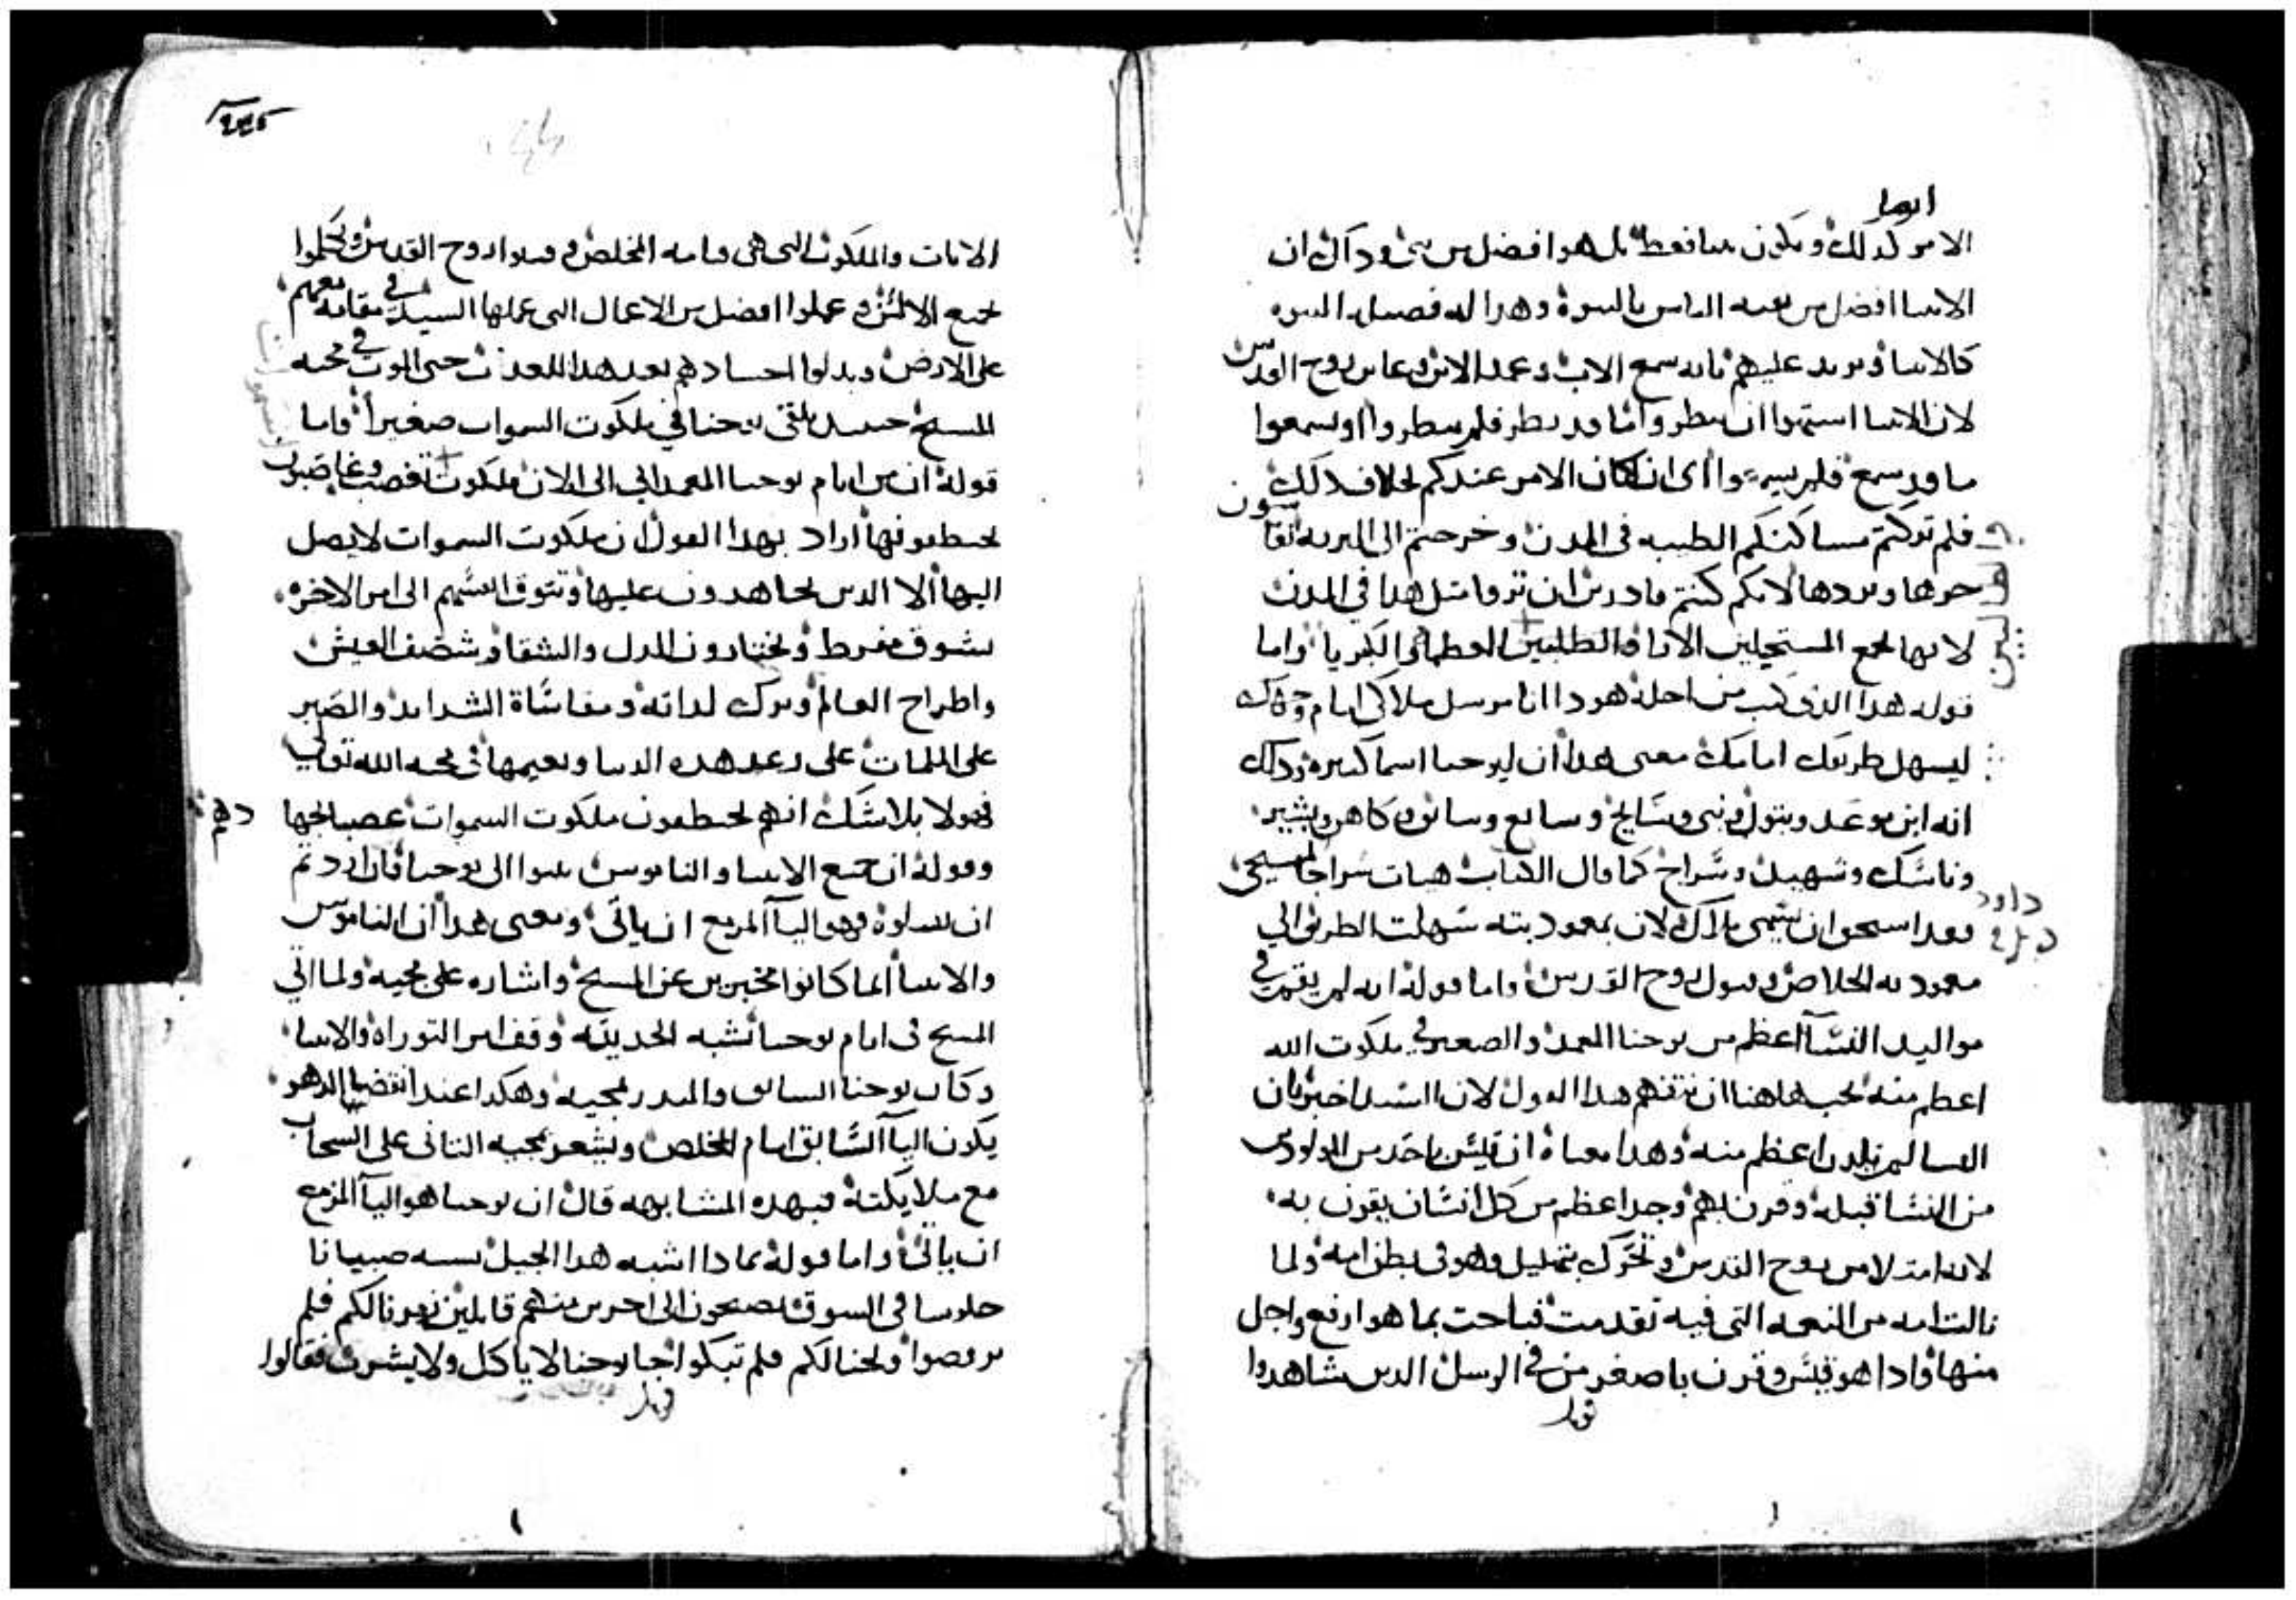 ايضا
الامر كذلك ويكون نبيا فقط بل هو افضل من نبي وذاك ان
الانبيا افضل من بقية الناس بالنبوة وهذا له فضيلة النبوه
كالانبيا ويزيد عليهم بانه سمع الاب وعمد الابن وعاين روح القدس
لان الانبيا اشتهوا ان ينظروا ما قد نظر فلم ينظروا او يسمعوا
ما قد سمع فلم يسمعوا اي ان كان الامر عندكم بخلاف ذلك
فلم تركتم مساكنكم الطيبه في المدن وخرجتم الى البريه تقاسون
حرها وبردها لانكم كنتم قادرين ان تروا مثل هذا في المدن
لانها تجمع المستحيلين الاراء والطلبين العظماء الكبريا واما
قوله هذا الذي كتب من اجله هوذا انا مرسل ملاكي امام وجهك
ليسهل طريقك امامك معنى هذا ان ليوحنا اسما كثيره وذلك
انه ابن موعد وبتول ونبي وسايح وسابع وسابق وكاهن وبشير
وناسك وشهيد وسراج كما قال الكتاب هيات سراجا لمسيحي
داود
وبهذا استحق ان يسمى ملاك لان بمعموديته سهلت الطريق الي
معموديه الخلاص وقبول روح القدس واما قوله انه لم يقم في
مواليد النسا اعظم من يوحنا المعمد والصغير في ملكوت الله
اعظم منه يجب هاهنا ان نتفهم هذا القول لان السيد اخبر بان
النسا لم تلدن اعظم منه وهذا معناه ان قيس باحد من المولودين
من النسا قبله وقرن بهم وجد اعظم من كل انسان يقرن به
لانه امتلا من روح القدس وتحرك بتهليل وهو في بطن امه ولما
نالت امه من النعمه التي فيه تقدمت فباحت بما هو ارفع واجل
منها واذا هو قيس وقرن باصغر من في الرسل الذين شاهدوا
الايات والملكوت التي هي قيامه المخلص وقبلوا روح القدس وتكلموا
بجميع الالسن وعملوا افضل من الاعمال التي عملها السيد في مقامه معهم
على الارض وبذلوا اجسادهم بعد هذا للعذاب حتى الموت في محبه
المسيح حينيذ يلتقى يوحنا في ملكوت السموات صغيرا واما
قوله ان من ايام يوحنا المعمداني الى الان ملكوت تغصب وغاصبون
يختطفونها اراد بهذا القول ان ملكوت السموات لا يصل
اليها الا الذين يجاهدون عليها وتتوق انفسهم الى امر الاخره
بشوق مفرط ويختارون الذل والشقا وشضف العيش
واطراح العالم وترك لذاته ومقاساة الشدايد والصبر
على الملمات على رغد هذه الدنيا ونعيمها في محبه الله تعالي
فهولا بلا شك انهم يختطفون ملكوت السموات غصبا لحبها
وقوله ان جميع الانبيا والناموس تنبوا الى يوحنا فان اردتم
ان تقبلوه فهو اليا المزمع ان ياتي ومعنى هذا ان الناموس
والانبيا انما كانوا مخبرين عن المسيح واشاره على مجيه ولما اتي
المسيح في ايام يوحنا بسنه الحديثه وقف امر التوراه والانبيا
وكان يوحنا السابق والمنذر لمجيه وهكذا عند انقضا الدهور
يكون اليا السابق امام المخلص ويشعر بمجيه الثاني على السحاب
مع ملايكته فبهذه المشابهه قال ان يوحنا هو اليا المزمع
ان ياتي واما قوله بماذا اشبه هذا الجيل يشبه صبيانا
جلوسا في السوق يصيحون الى اخرين منهم قايلين زمرنا لكم فلم
ترقصوا ونحنا لكم فلم تبكوا جا يوحنا لا ياكل ولا يشرب فقالوا